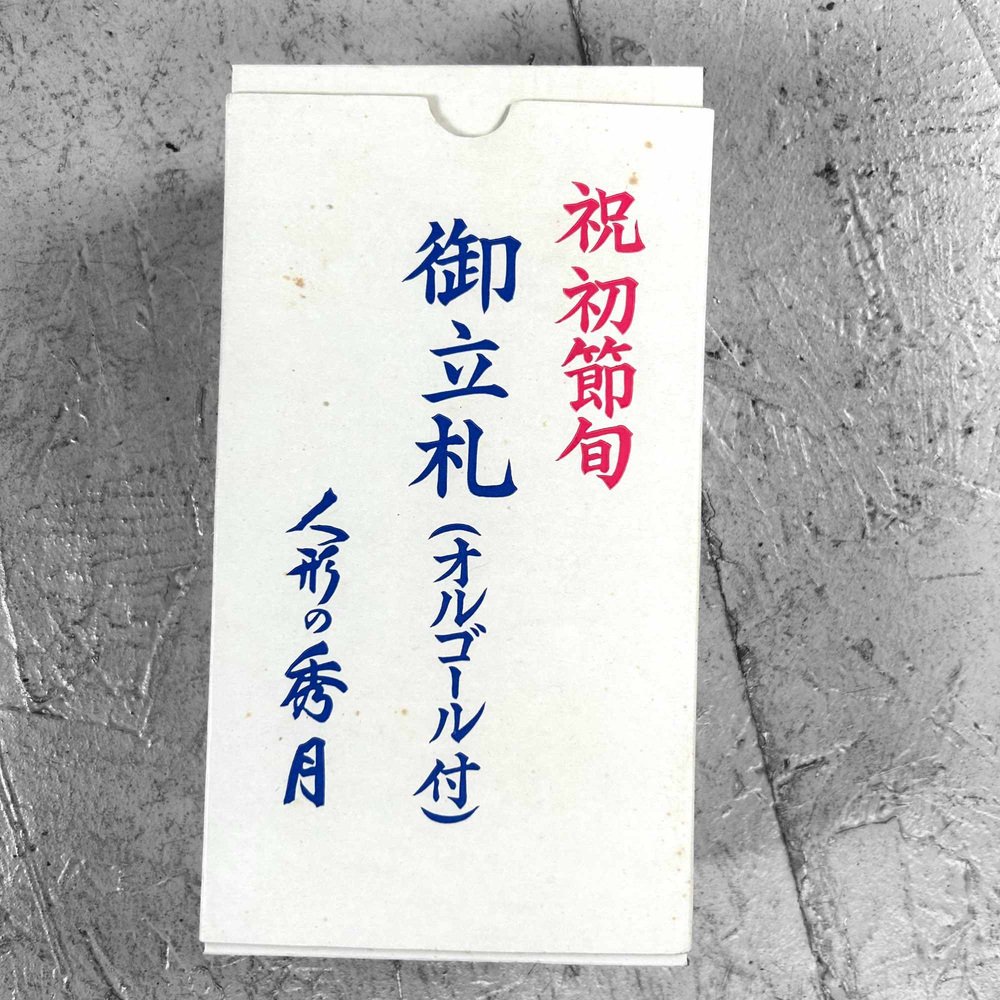 祝 初節旬
御立札(オルゴール付)
人形の秀月